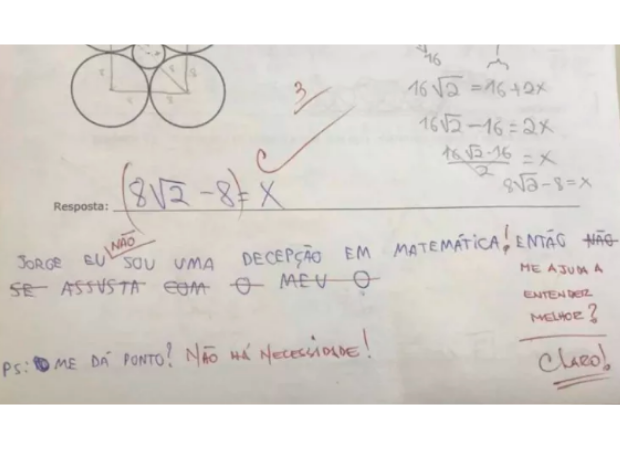 8
8
8
8
16
3
16√2 = 16 + 2x
16√2 - 16 = 2x
16√2 - 16 / 2 = x
8√2 - 8 = x
Resposta: (8√2 - 8) = x
NÃO
JORGE EU SOU UMA DECEPÇÃO EM MATEMÁTICA! ENTÃO NÃO
SE ASSUSTA COM O MEU 0
ME AJUDA A
ENTENDER
MELHOR?
CLARO!
PS: ME DÁ PONTO? NÃO HÁ NECESSIDADE!